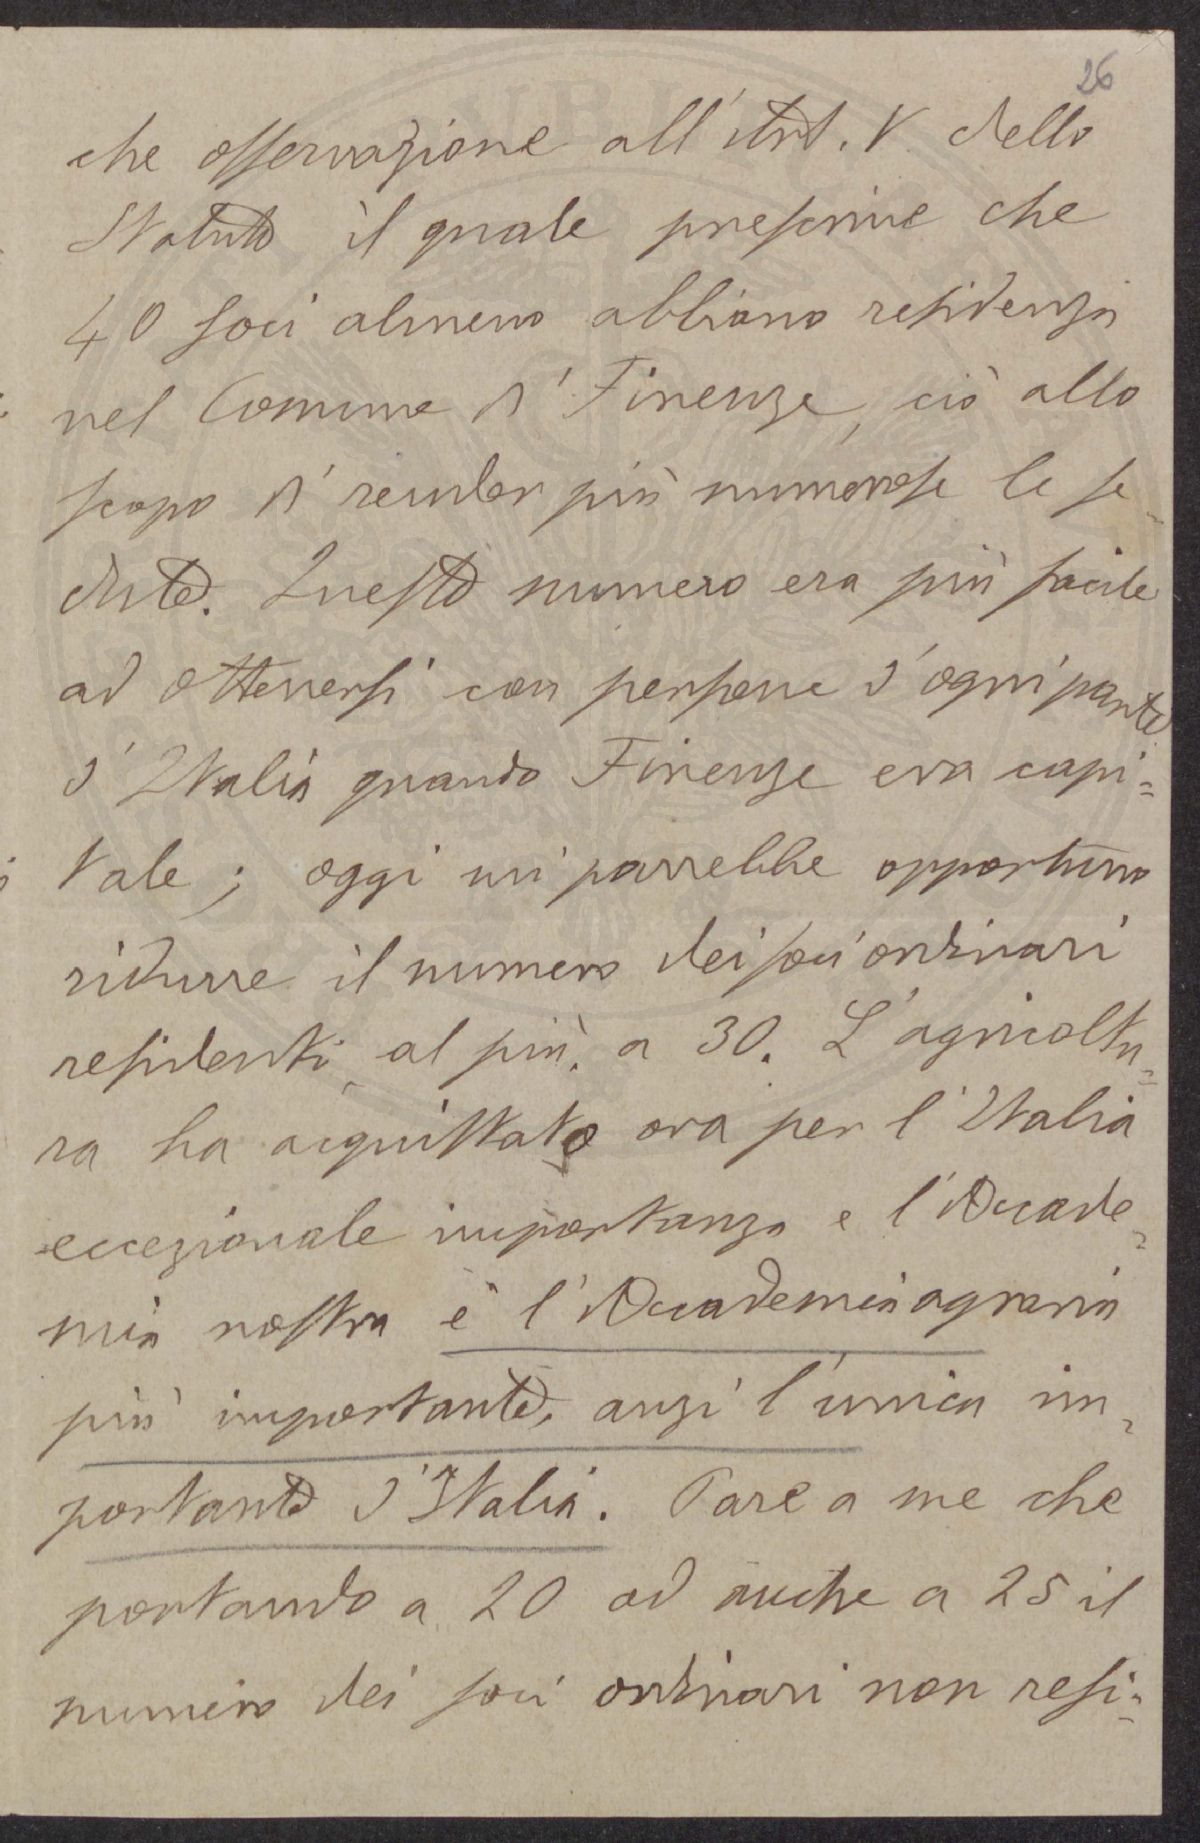 26
che osservazione all'Art. V. dello
Statuto il quale prescrive che
40 soci almeno abbiano residenza
nel Comune di Firenze, ciò allo
scopo di render più numerose le se-
dute. Questo numero era più facile
ad ottenersi con persone d'ogni parte
d'Italia quando Firenze era capi=
tale; oggi mi parrebbe opportuno
ridurre il numero dei soci ordinari
residenti, al più, a 30. L'agricoltu=
ra ha acquistato ora per l'Italia
eccezionale importanza e l'Accade=
mia nostra è l'Accademia agraria
più importante, anzi l'unica im=
portante d'Italia. Pare a me che
portando a 20 od anche a 25 il
numero dei soci ordinari non resi=